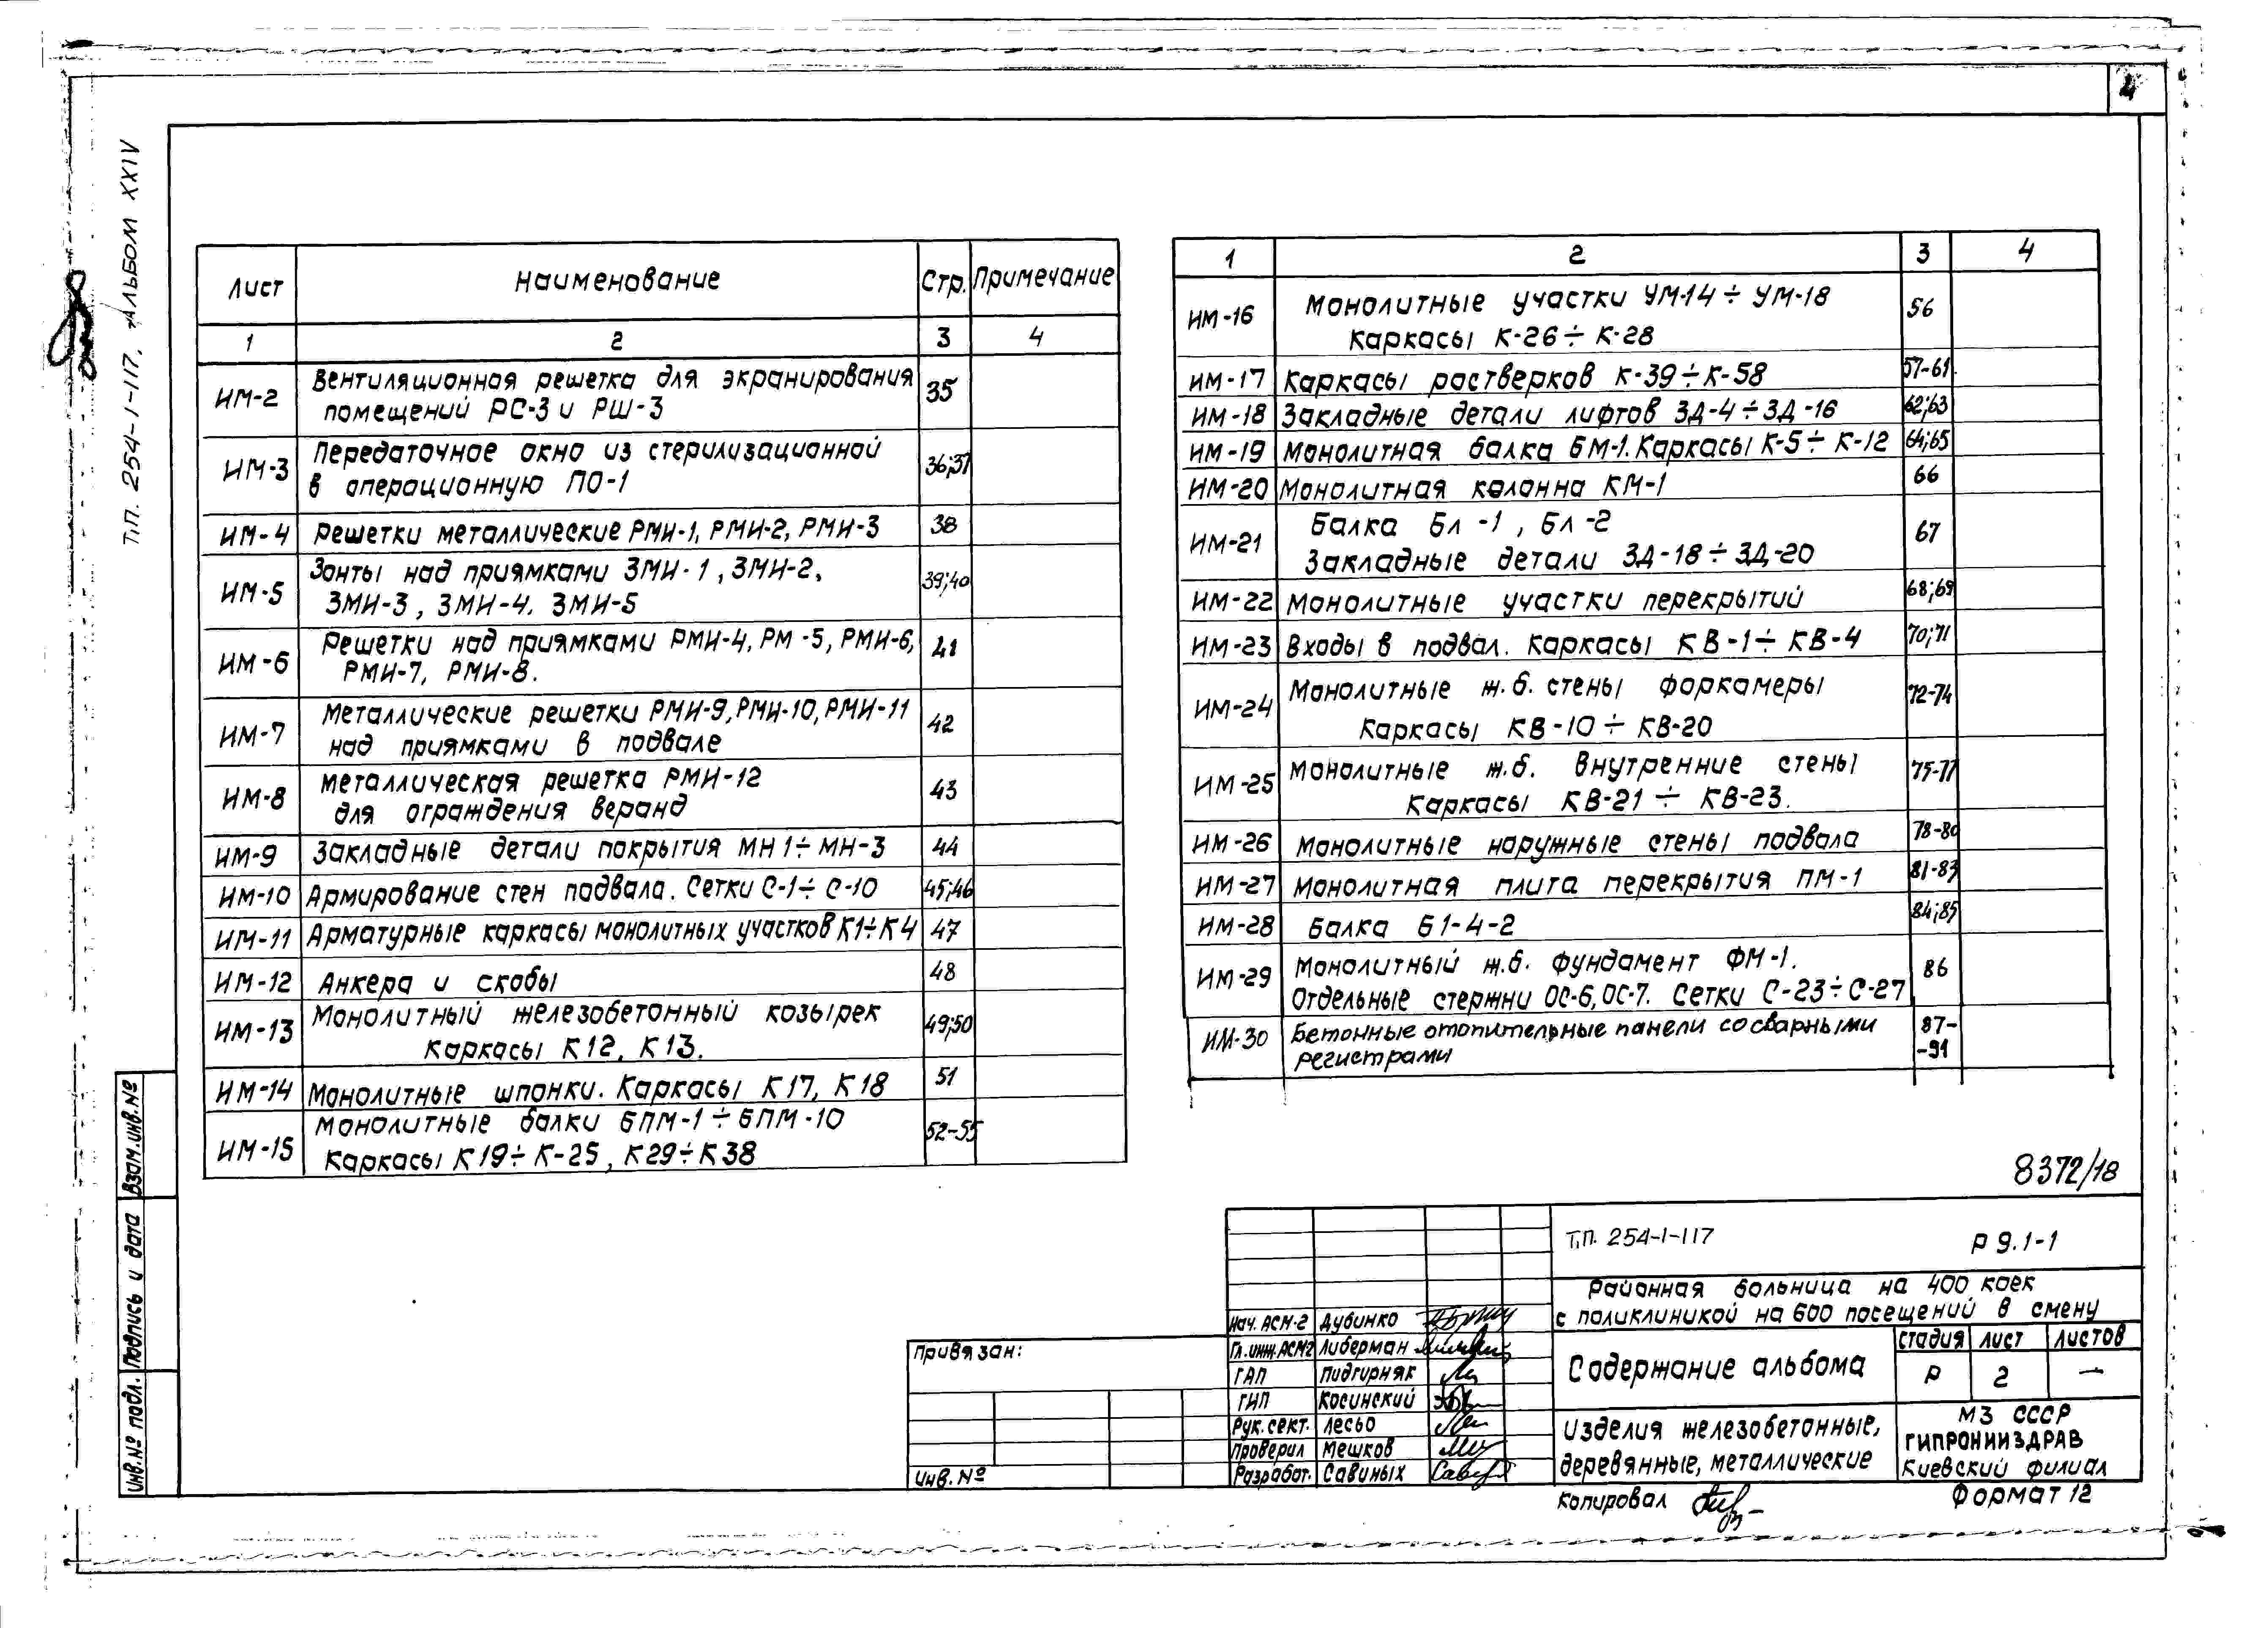 4
Т.П. 254-1-117. Альбом XXIV
Лист Наименование Стр. Примечание
1 2 3 4
ИМ-2 Вентиляционная решетка для экранирования 35
помещений РС-3 и РШ-3
ИМ-3 Передаточное окно из стерилизационной 36;37
в операционную ПО-1
ИМ-4 Решетки металлические РМИ-1, РМИ-2, РМИ-3 38
ИМ-5 Зонты над приямками ЗМИ-1, ЗМИ-2, 39;40
ЗМИ-3, ЗМИ-4. ЗМИ-5
ИМ-6 Решетки над приямками РМИ-4, РМ-5, РМИ-6, 41
РМИ-7, РМИ-8.
ИМ-7 Металлические решетки РМИ-9, РМИ-10, РМИ-11 42
над приямками в подвале
ИМ-8 Металлическая решетка РМИ-12 43
для ограждения веранд
ИМ-9 Закладные детали покрытия МН1÷МН-3 44
ИМ-10 Армирование стен подвала. Сетки С-1÷С-10 45;46
ИМ-11 Арматурные каркасы монолитных участков К1÷К4 47
ИМ-12 Анкера и скобы 48
ИМ-13 Монолитный железобетонный козырек 49;50
Каркасы К12, К13.
ИМ-14 Монолитные шпонки. Каркасы К17, К18 51
ИМ-15 Монолитные балки БПМ-1÷БПМ-10 52-55
Каркасы К19÷К-25, К29÷К38
1 2 3 4
ИМ-16 Монолитные участки УМ-14÷УМ-18 56
Каркасы К-26÷К-28
ИМ-17 Каркасы ростверков К-39÷К-58 57-61
ИМ-18 Закладные детали лифтов ЗД-4÷ЗД-16 62;63
ИМ-19 Монолитная балка БМ-1. Каркасы К-5÷К-12 64;65
ИМ-20 Монолитная колонна КМ-1 66
ИМ-21 Балка Бл-1, Бл-2 67
Закладные детали ЗД-18÷ЗД-20
ИМ-22 Монолитные участки перекрытий 68;69
ИМ-23 Входы в подвал. Каркасы КВ-1÷КВ-4 70;71
ИМ-24 Монолитные ж.б. стены форкамеры 72-74
Каркасы КВ-10÷КВ-20
ИМ-25 Монолитные ж.б. внутренние стены 75-77
Каркасы КВ-21÷КВ-23.
ИМ-26 Монолитные наружные стены подвала 78-80
ИМ-27 Монолитная плита перекрытия ПМ-1 81-83
ИМ-28 Балка Б1-4-2 84;85
ИМ-29 Монолитный ж.б. фундамент ФМ-1. 86
Отдельные стержни ОС-6, ОС-7. Сетки С-23÷С-27
ИМ-30 Бетонные отопительные панели со сварными 87-
регистрами -91
8372/18
Т.П. 254-1-117 Р 9.1-1
Районная больница на 400 коек
с поликлиникой на 600 посещений в смену
Содержание альбома
Стадия Лист Листов
Р 2 —
Изделия железобетонные,
деревянные, металлические
МЗ СССР
ГИПРОНИИЗДРАВ
Киевский филиал
Нач. АСМ-2 Дубинко
Гл.инж.АСМ2 Либерман
ГАП Пидгирняк
ГИП Косинский
Рук. сект. Лесьо
Проверил Мешков
Разработ. Савиных
Привязан:
Инв. №
Копировал
Формат 12
Взам.инв.№
Подпись и дата
Инв.№ подл.